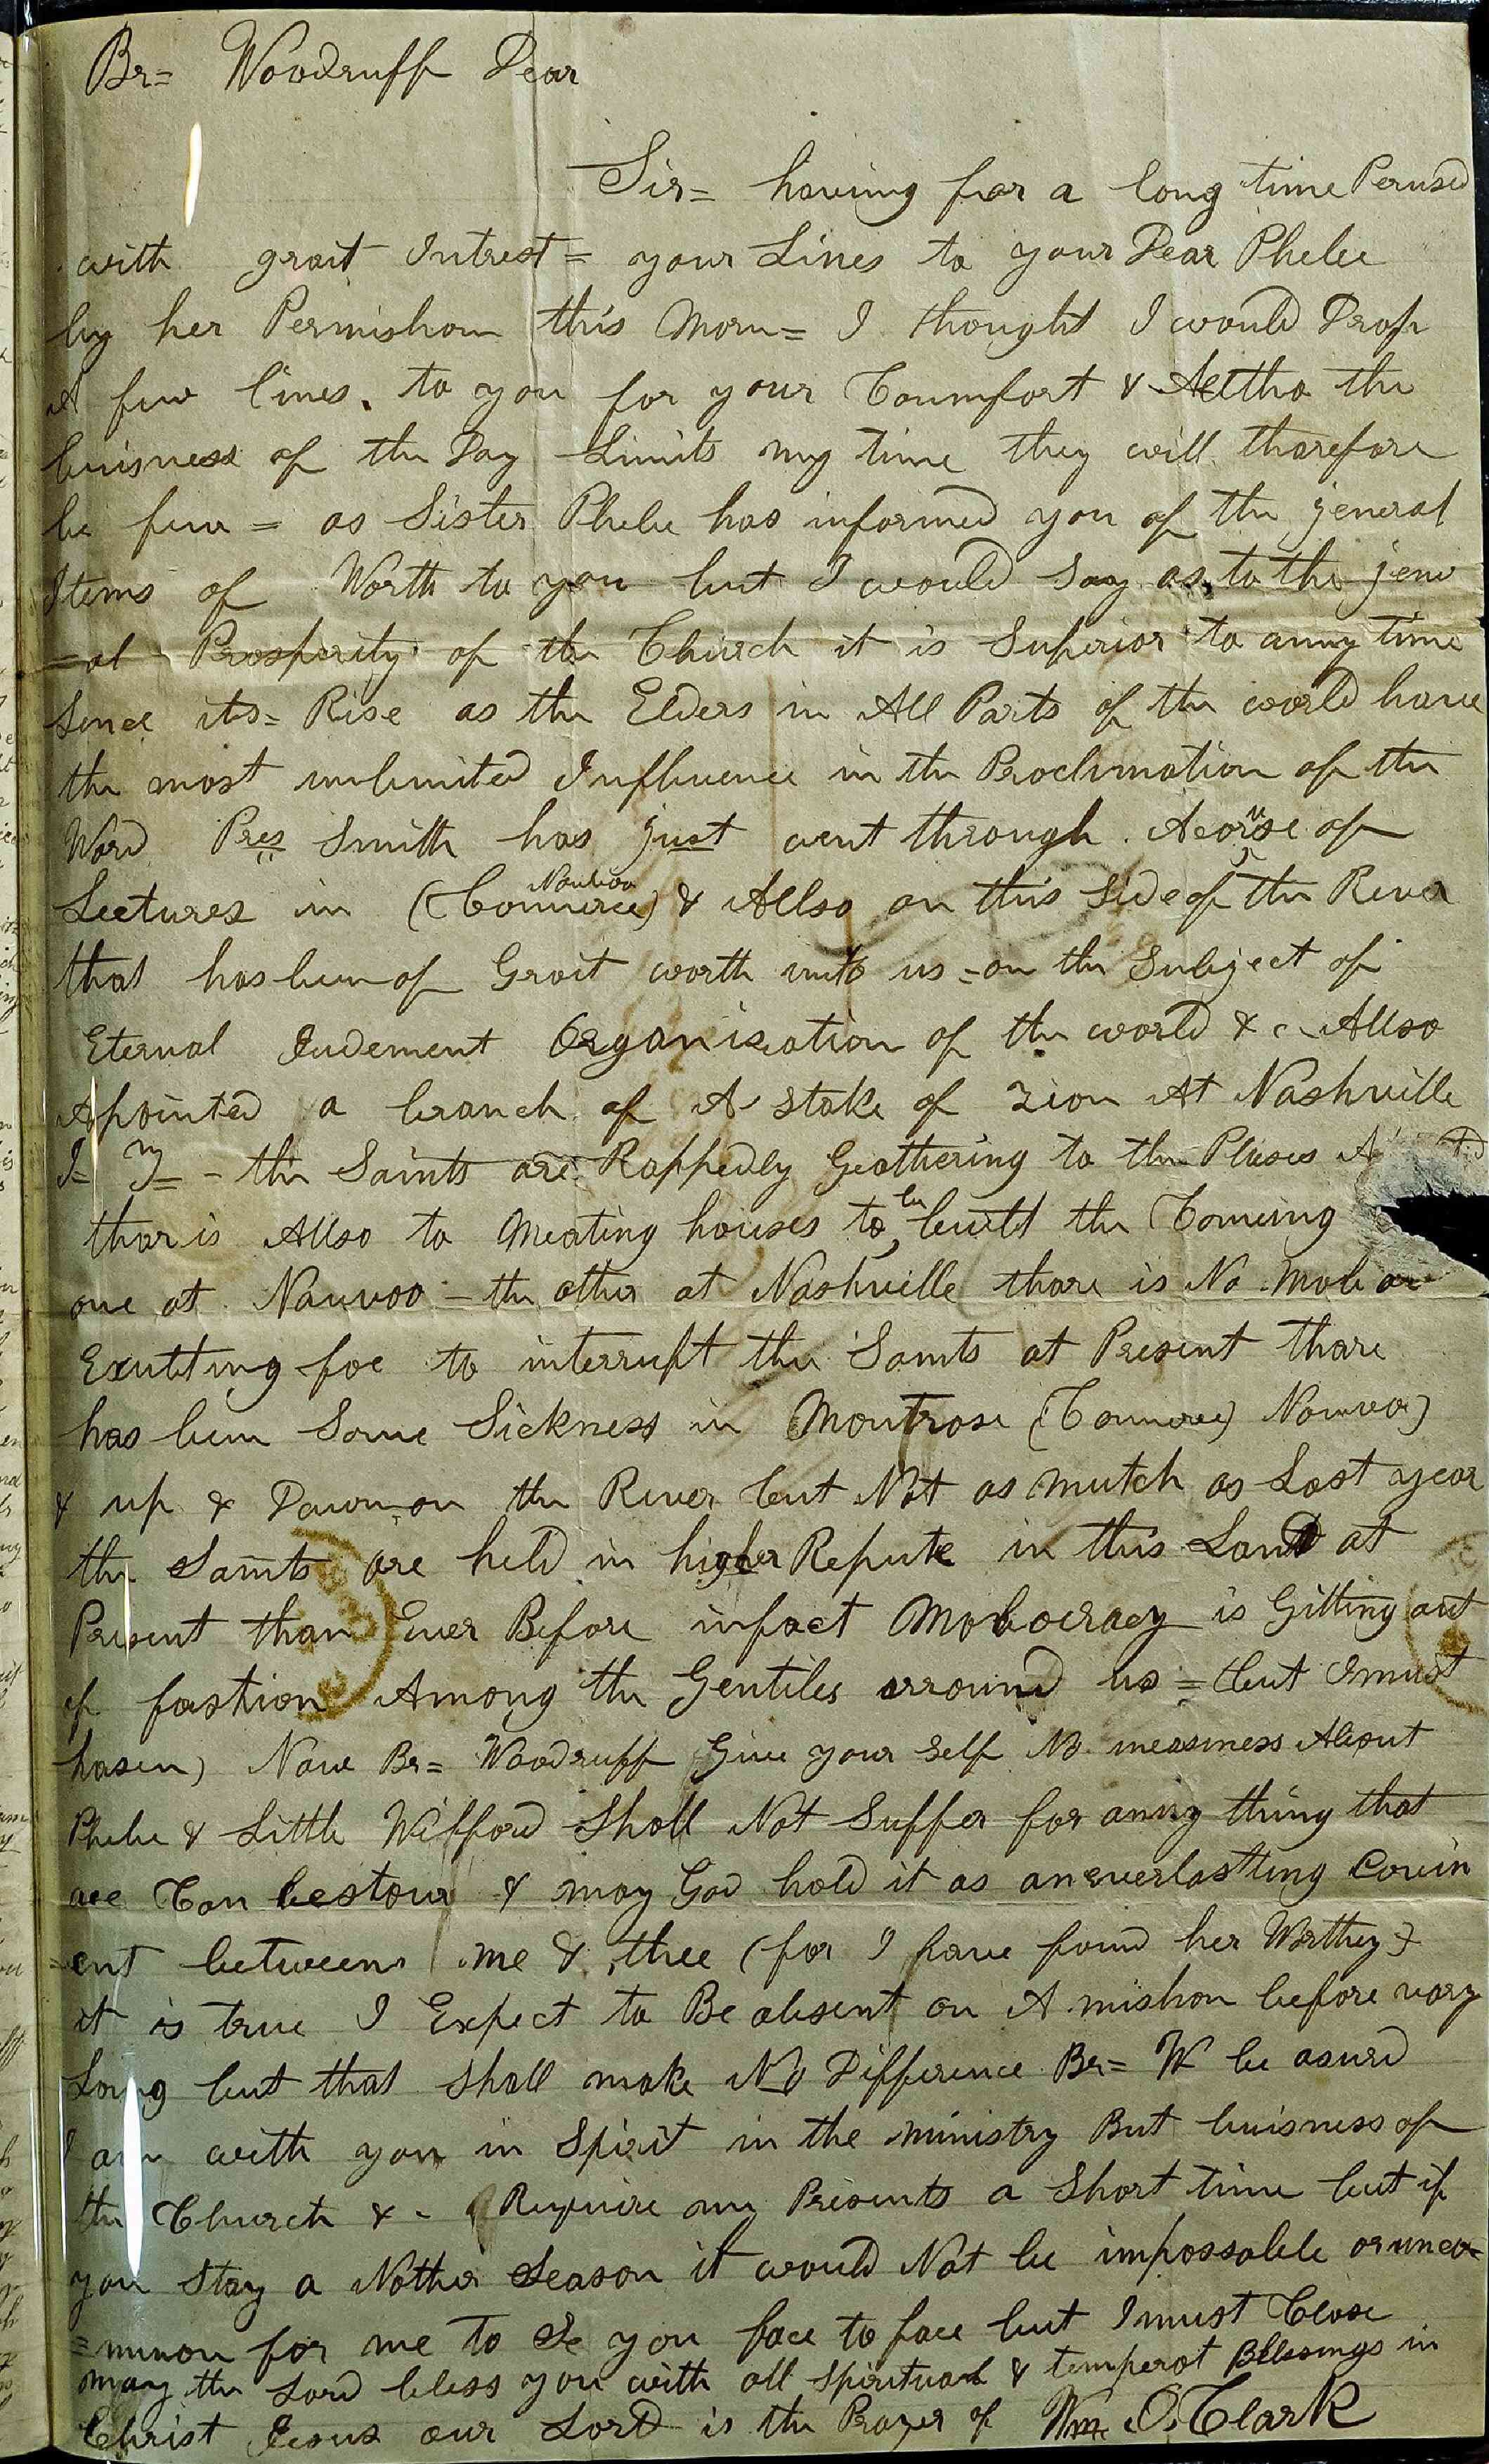 Br= Woodruff Dear
Sir= having for a long time Perused
with grait Intrest= your Lines to your Dear Phebe
by her Permishom this Morn= I thought I would Drop
A few lines. to you for your Coumfort & Alltho the
buisness of the Day Limits my time they will tharefore
be few = as Sister Phebe has informed you of the jeneral
Items of Worth to you but I would Say as to the jenu
=al Prosperity of the Church it is Superior to anny time
Sence its= Rise as the Elders in All Parts of the world have
the most unlimited Influence in the Proclimation of the
Word Pres Smith has just went through A corse of
Lectures in (Commerce) Nauvoo & Allso on this Side of the River
that has been of Grait worth unto us =on the Subject of
Eternal Judement Organisation of the world &c Allso
Apointed a branch of A stake of Zion At Nashville
I= T= - the Saints are Rappedly Geathering to the Plases
thar is Allso to Meating houses to be built the Comeing
one at Nauvoo - the other at Nashville thare is No Mob or
Exutting foe to interrupt the Saints at Present thare
has been Some Sickness in Montrose (Commerce) Nauvoo)
& up & Down on the River but Not as mutch as Last year
the Saints are held in higher Repute in this Land at
Present than Ever Before infact Mobocracy is Gitting out
of fastion Among the Gentiles arround us = but I must
hasen) Now Br= Woodruff Give your Self No uneasiness About
Phebe & Little Willford Shall Not Suffer for anny thing that
we Can bestow & may God hold it as an everlastting Covin
=ent between me & thee (for I have found her Worthey)
it is true I Expect to Be absent on A mishon before vary
Long but that Shall make No Difference Br= W be asured
I am with you in Spirit in the ministry But buisness of
the Church &- Require my Presents a Short time but if
you Stay a Nother Season it would Not be impossable or unco=
=mmon for me to Se you face to face but I must Close
may the Lord bless you with all Spiritual & temperat Blessings in
Christ Jesus our Lord is the Prayer of Wm. O. Clark